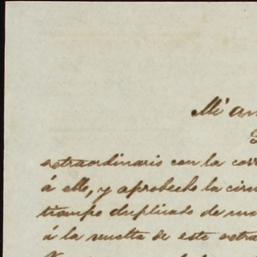 Mi am
extraordinario con la corr
á ello, y aprobecho la circu
tiempo duplicado de mi
á la vuelta de este extra